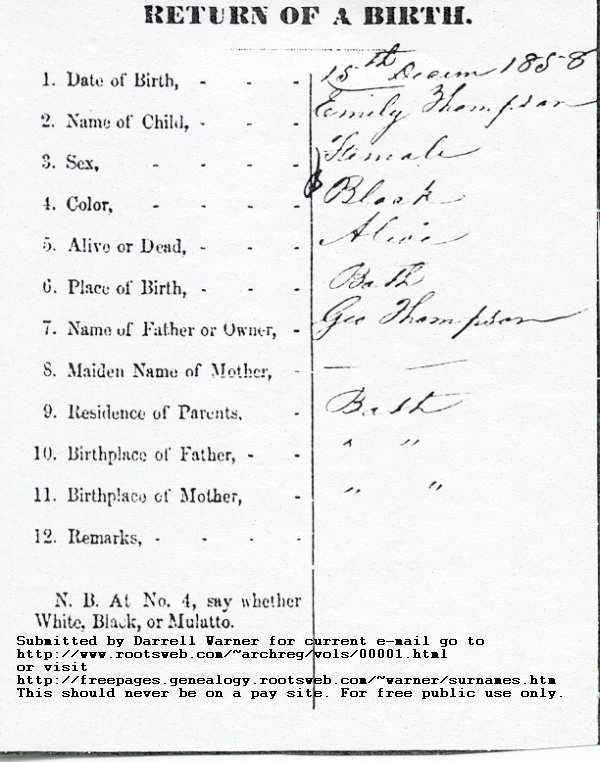 RETURN OF A BIRTH.
1. Date of Birth, - - - 15th Decem 1858
2. Name of Child, - - - Emily Thompson
3. Sex, - - - - Female
4. Color, - - - - Black
5. Alive or Dead, - - - Alive
6. Place of Birth, - - - Bath
7. Name of Father or Owner, - Geo Thompson
8. Maiden Name of Mother, - — —
9. Residence of Parents, - Bath
10. Birthplace of Father, - - " "
11. Birthplace of Mother, - " "
12. Remarks, - - - -
N. B. At No. 4, say whether
White, Black, or Mulatto.
Submitted by Darrell Warner for current e-mail go to
http://www.rootsweb.com/~archreg/vols/00001.html
or visit
http://freepages.genealogy.rootsweb.com/~warner/surnames.htm
This should never be on a pay site. For free public use only.